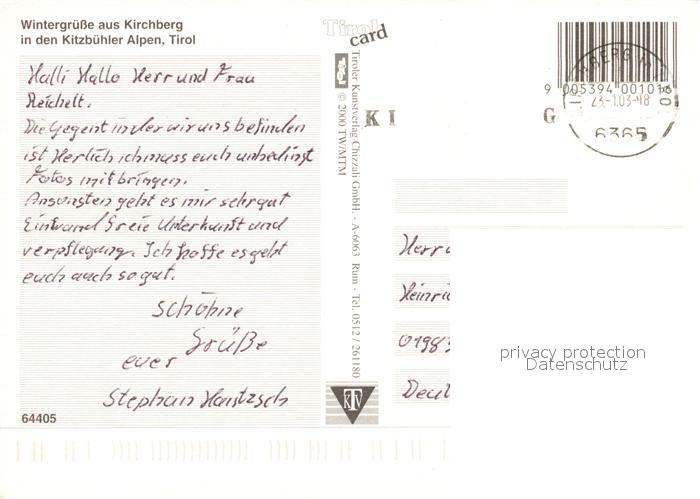 Wintergrüße aus Kirchberg
in den Kitzbühler Alpen, Tirol
Halli Hallo Herr und Frau
Reichelt.
Die Gegent in der wir uns befinden
ist Herlich ich muss euch unbedingt
Fotos mitbringen.
Ansonsten geht es mir sehr gut
Einwand freie Unterkunft und
verpflegung. Ich hoffe es geht
euch auch so gut.
Schöhne
Grüße
euer
Stephan
64405
Tirol
card
Tiroler Kunstverlag Chizzali GmbH. - A-6063 Rum - Tel. 0512 / 261180
© 2000 TW/MTM
KTV
K I
G
9 005394 001016
23.-1.03-18
6365
Herr
Heinri
0198
Deut
privacy protection
Datenschutz